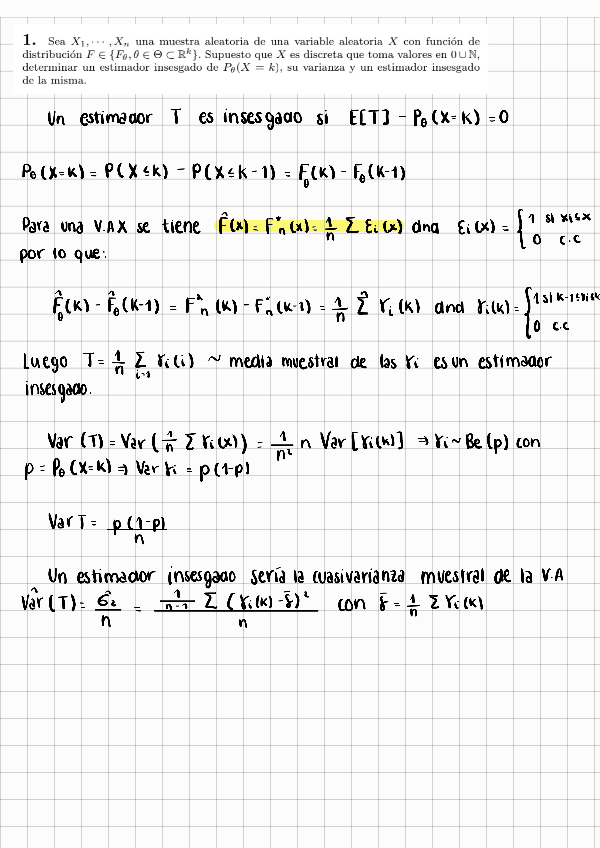 1. Sea X₁, ⋯ , Xₙ una muestra aleatoria de una variable aleatoria X con función de
distribución F ∈ {F_θ, θ ∈ Θ ⊂ ℝᵏ}. Supuesto que X es discreta que toma valores en 0 ∪ ℕ,
determinar un estimador insesgado de P_θ(X = k), su varianza y un estimador insesgado
de la misma.
Un estimador T es insesgado si E[T] - P_θ(X=k) = 0
P_θ(X=k) = P(X≤k) - P(X≤k-1) = F_θ(k) - F_θ(k-1)
Para una V.A X se tiene F̂(x) = F*ₙ(x) = 1/n Σ Ɛᵢ(x) dnd Ɛᵢ(x) = { 1 si xi≤x
0 c.c
por lo que:
F̂_θ(k) - F̂_θ(k-1) = F*ₙ(k) - F*ₙ(k-1) = 1/n Σⁿ γᵢ(k) dnd γᵢ(k) = { 1 si k-1≤xi≤k
0 c.c
Luego T = 1/n Σᵢ₌₁ γᵢ(i) ~ media muestral de las γi es un estimador
insesgado.
Var(T) = Var(1/n Σ γᵢ(x)) = 1/n² n Var[γᵢ(k)] ⇒ γᵢ ~ Be(p) con
p = P_θ(X=k) ⇒ Var γᵢ = p(1-p)
Var T = p(1-p)/n
Un estimador insesgado sería la cuasivarianza muestral de la V.A
Vâr(T) = σ̂²/n = (1/(n-1) Σ (γᵢ(k) - γ̄)²)/n con γ̄ = 1/n Σ γᵢ(k)